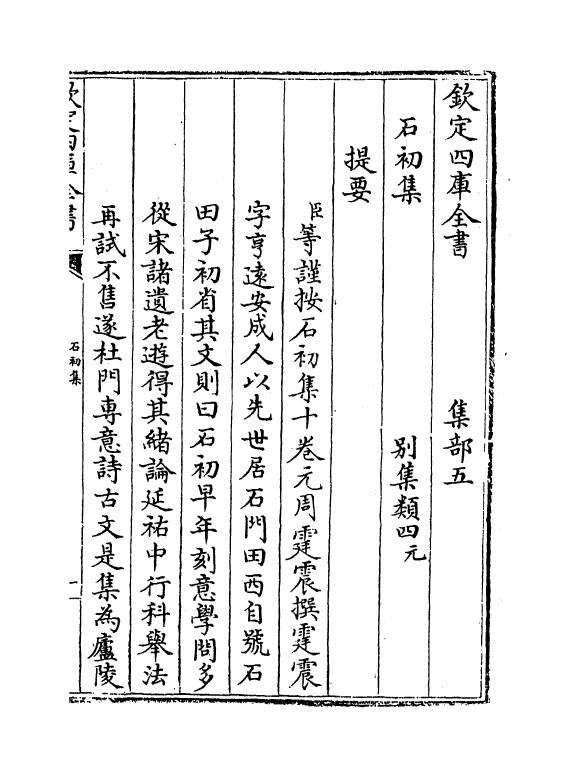 欽定四庫全書　集部五
石初集　別集類四元
提要
臣等謹按石初集十卷元周霆震撰霆震
字亨遠安成人以先世居石門田西自號石
田子初省其文則曰石初早年刻意學問多
從宋諸遺老遊得其緒論延祐中行科舉法
再試不售遂杜門専意詩古文是集為廬陵
欽定四庫全書　石初集　一